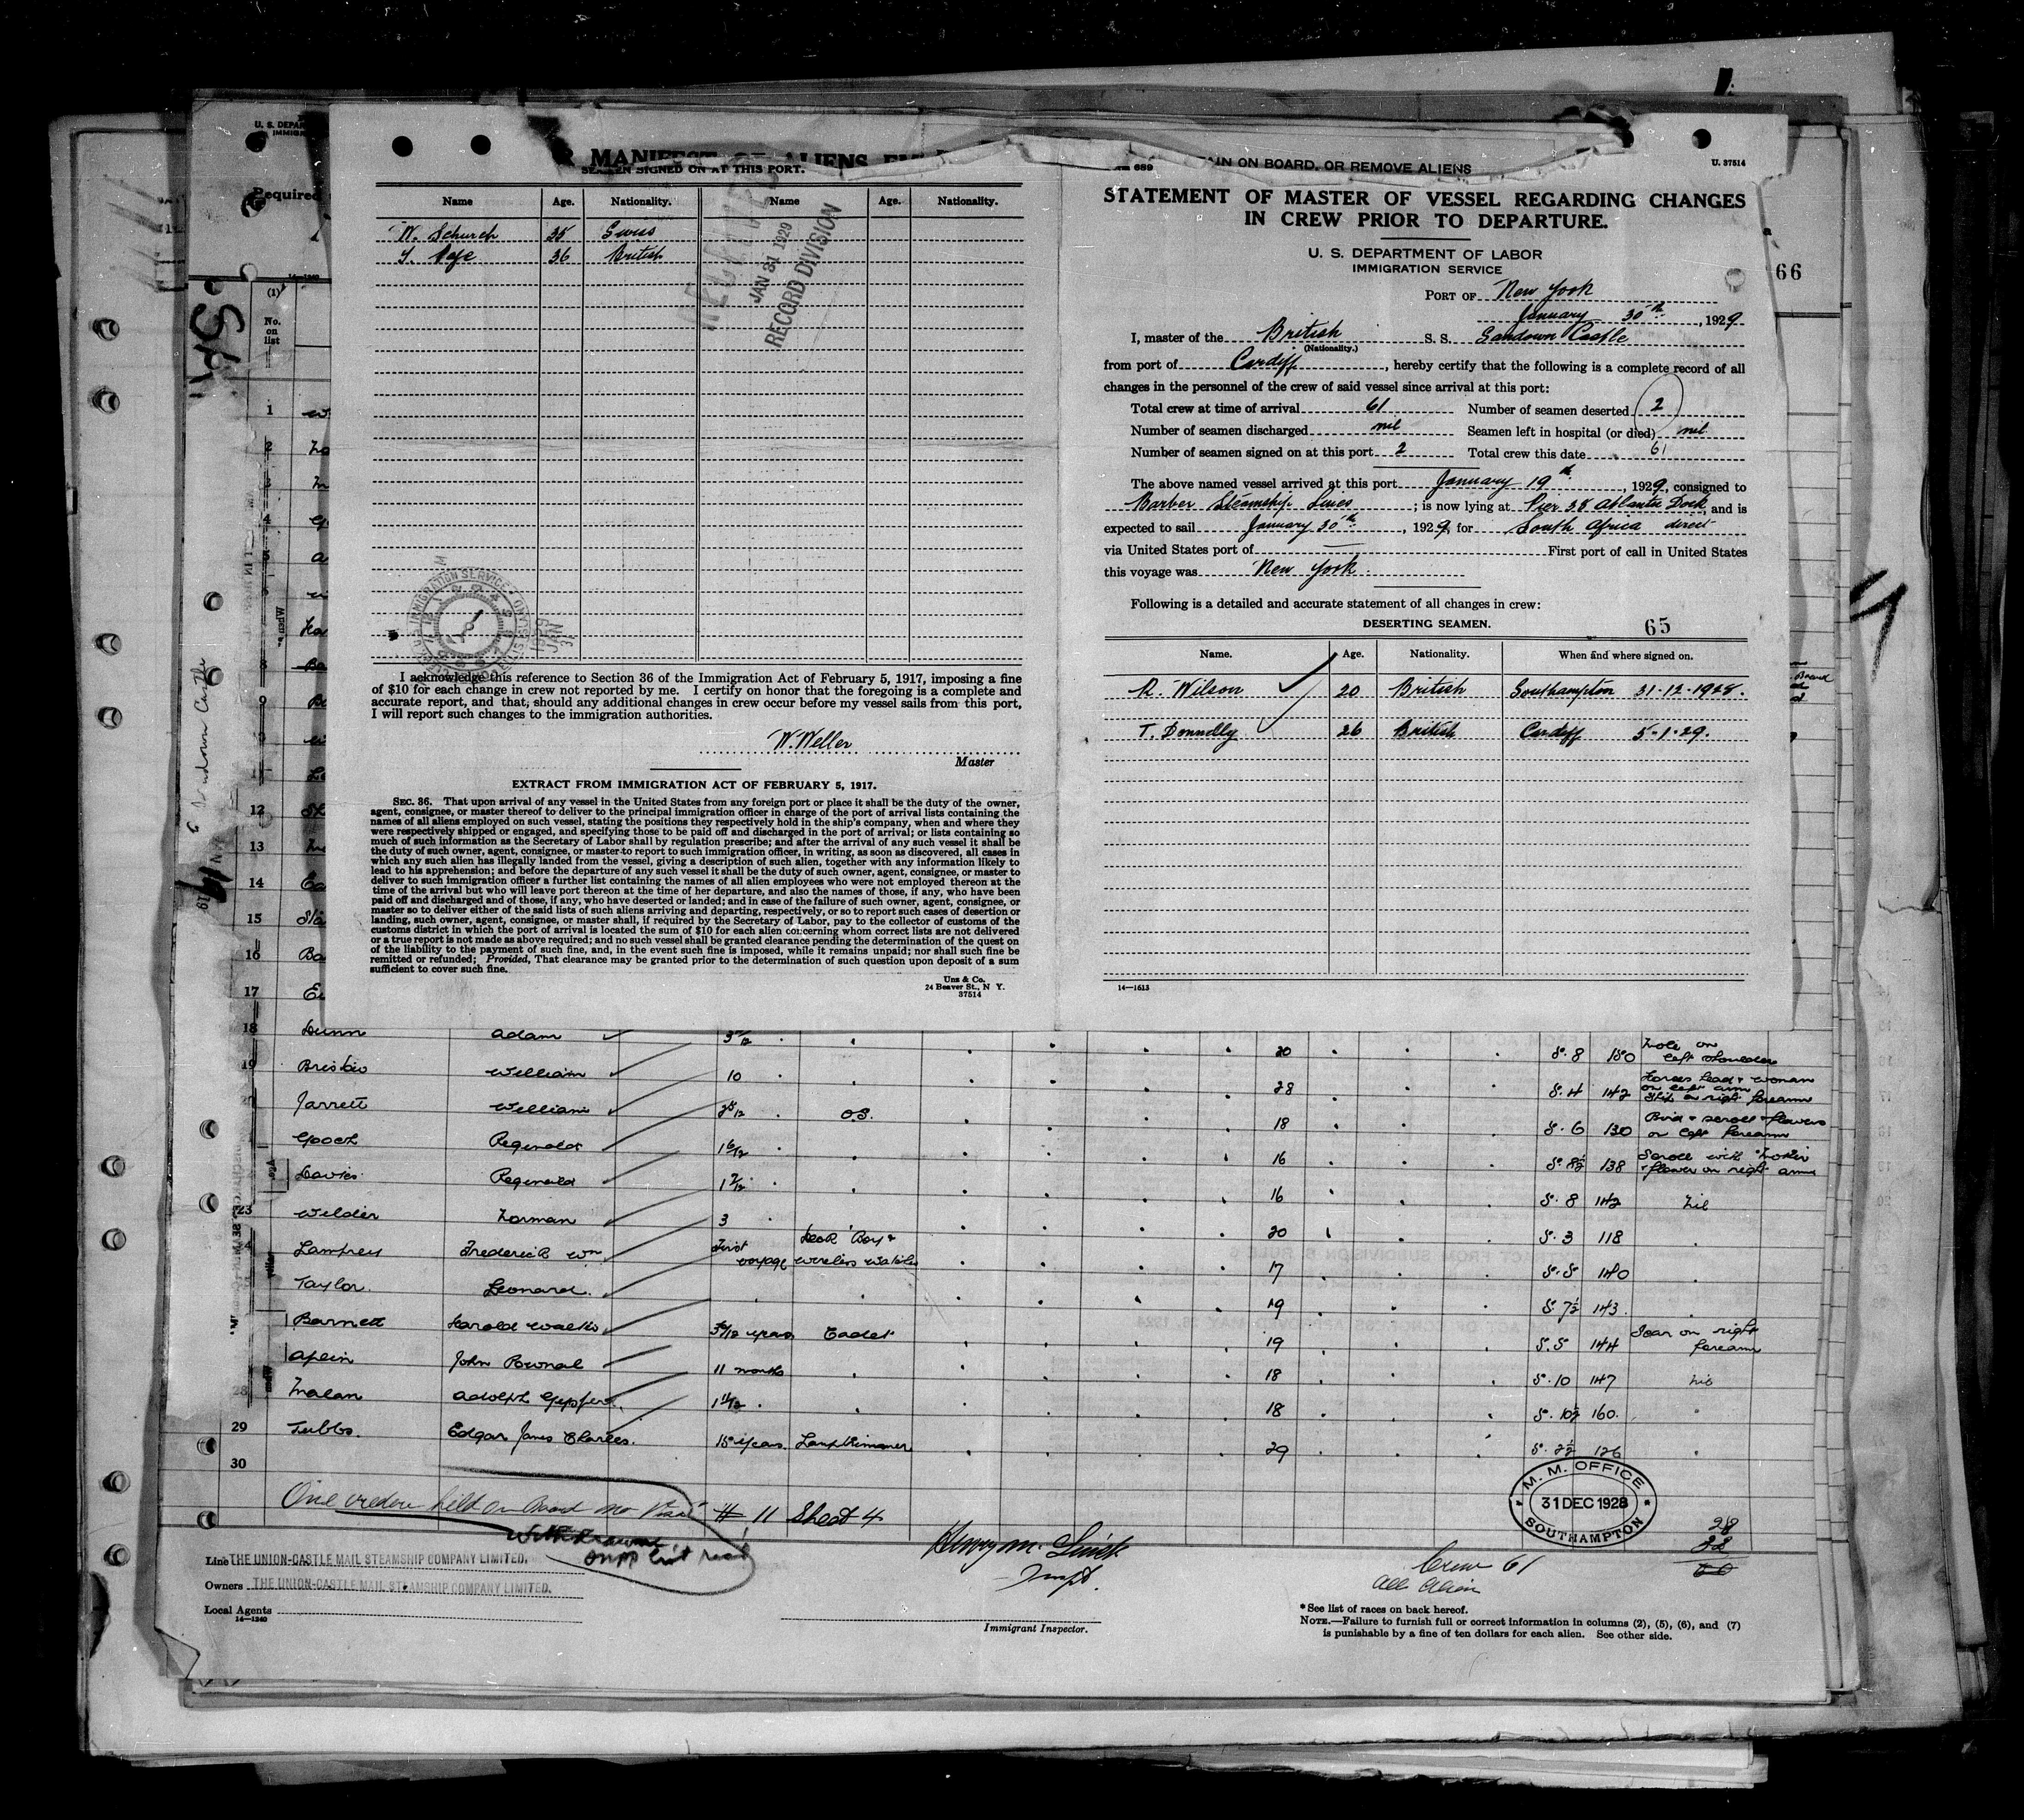 U. S. DEPAR
IMMIGRA
Required
MANIFEST OF ALIENS
SEAMEN SIGNED ON AT THIS PORT.
Name Age. Nationality. Name Age. Nationality.
W. Schurch 35 Swiss
36 British
JAN 31 1929
RECORD DIVISION
I acknowledge this reference to Section 36 of the Immigration Act of February 5, 1917, imposing a fine
of $10 for each change in crew not reported by me. I certify on honor that the foregoing is a complete and
accurate report, and that, should any additional changes in crew occur before my vessel sails from this port,
I will report such changes to the immigration authorities.
W. Weller
Master
EXTRACT FROM IMMIGRATION ACT OF FEBRUARY 5, 1917.
SEC. 36. That upon arrival of any vessel in the United States from any foreign port or place it shall be the duty of the owner,
agent, consignee, or master thereof to deliver to the principal immigration officer in charge of the port of arrival lists containing the
names of all aliens employed on such vessel, stating the positions they respectively hold in the ship's company, when and where they
were respectively shipped or engaged, and specifying those to be paid off and discharged in the port of arrival; or lists containing so
much of such information as the Secretary of Labor shall by regulation prescribe; and after the arrival of any such vessel it shall be
the duty of such owner, agent, consignee, or master to report to such immigration officer, in writing, as soon as discovered, all cases in
which any such alien has illegally landed from the vessel, giving a description of such alien, together with any information likely to
lead to his apprehension; and before the departure of any such vessel it shall be the duty of such owner, agent, consignee, or master to
deliver to such immigration officer a further list containing the names of all alien employees who were not employed thereon at the
time of the arrival but who will leave port thereon at the time of her departure, and also the names of those, if any, who have been
paid off and discharged and of those, if any, who have deserted or landed; and in case of the failure of such owner, agent, consignee, or
master so to deliver either of the said lists of such aliens arriving and departing, respectively, or so to report such cases of desertion or
landing, such owner, agent, consignee, or master shall, if required by the Secretary of Labor, pay to the collector of customs of the
customs district in which the port of arrival is located the sum of $10 for each alien concerning whom correct lists are not delivered
or a true report is not made as above required; and no such vessel shall be granted clearance pending the determination of the quest on
of the liability to the payment of such fine, and, in the event such fine is imposed, while it remains unpaid; nor shall such fine be
remitted or refunded; Provided, That clearance may be granted prior to the determination of such question upon deposit of a sum
sufficient to cover such fine.
Uns & Co.
24 Beaver St., N Y.
37514
689
AIN ON BOARD, OR REMOVE ALIENS
U. 37514
STATEMENT OF MASTER OF VESSEL REGARDING CHANGES
IN CREW PRIOR TO DEPARTURE.
U. S. DEPARTMENT OF LABOR
IMMIGRATION SERVICE
66
PORT OF New York
January 30th, 1929
I, master of the British S. S. Sandown Castle
(Nationality.)
from port of Cardiff, hereby certify that the following is a complete record of all
changes in the personnel of the crew of said vessel since arrival at this port:
Total crew at time of arrival 61 Number of seamen deserted 2
Number of seamen discharged nil Seamen left in hospital (or died) nil
Number of seamen signed on at this port 2 Total crew this date 61
The above named vessel arrived at this port January 19th, 1929, consigned to
Barber Steamship Lines; is now lying at Pier 38 Atlantic Dock, and is
expected to sail January 30th, 1929, for South Africa direct
via United States port of — First port of call in United States
this voyage was New York
Following is a detailed and accurate statement of all changes in crew:
DESERTING SEAMEN. 65
Name. Age. Nationality. When and where signed on.
R. Wilson 20 British Southampton 31-12-1928.
T. Donnelly 26 British Cardiff 5-1-29.
14—1613
(1)
No.
on
list
1
2
3
4
12
13
14
15
16
17
18 Dunn Adam 3/12 20 5.8 150 Mole on left shoulder
19 William 10 28 5.4 142 Horses head & woman on left arm Ship on right forearm
Jarrett William O.S. 18 5.6 130 Bird & scroll & flowers on left forearm
Gooch Reginald 16 5.8½ 138 Scroll with Mother & flower on right arm
Davies Reginald 16 5.8 142 nil
23 Wilder Norman 3 20 5.3 118
Lamprey Frederick Wm First voyage Deck Boy & wireless watcher 17 5.5 140
Taylor Leonard 19 5.7½ 143
Barnett Harold Walter years Cadet 19 5.5 144 Scar on right forearm
John Pownal 11 months 18 5.10 147 nil
28 Malan Adolph 18 5.10½ 160
29 Tubbs. Edgar James Charles. 15 years Lamptrimmer 29 5.2½ 126
30
# 11 Sheet 4
M. M. OFFICE
31 DEC 1928
SOUTHAMPTON
28
Crew 61
All Alien
Line THE UNION-CASTLE MAIL STEAMSHIP COMPANY LIMITED.
Owners THE UNION-CASTLE MAIL STEAMSHIP COMPANY LIMITED.
Local Agents
14—1240
Immigrant Inspector.
* See list of races on back hereof.
NOTE.—Failure to furnish full or correct information in columns (2), (5), (6), and (7)
is punishable by a fine of ten dollars for each alien. See other side.